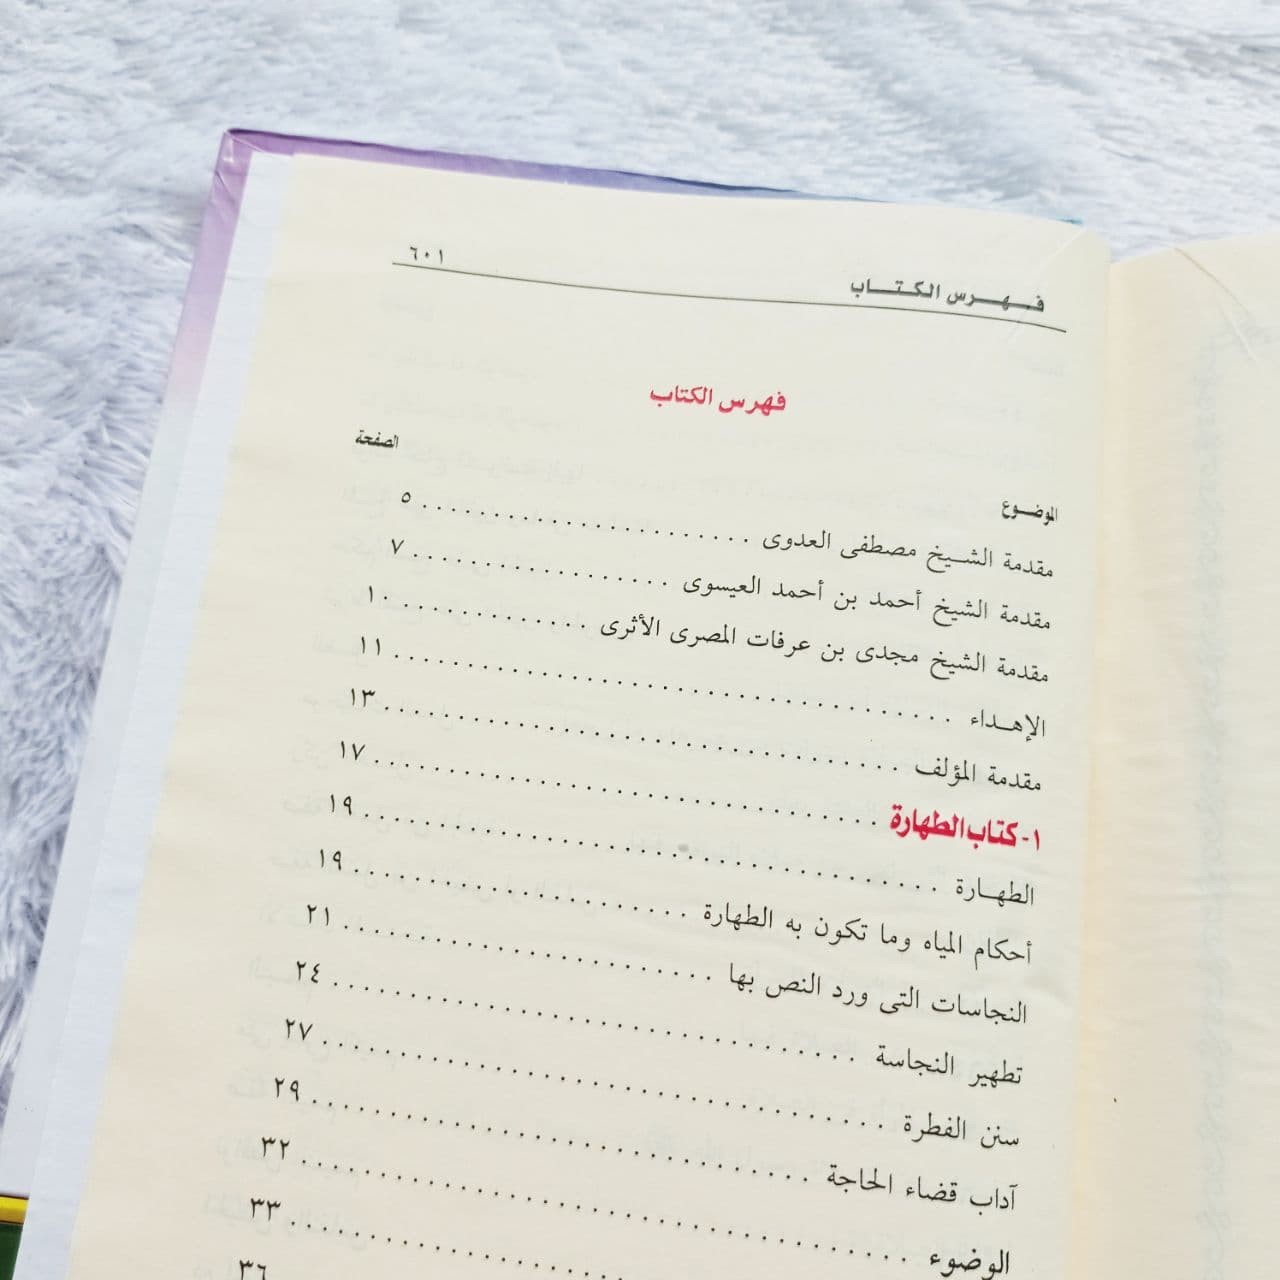 فـهـرس الكـتـاب ٦٠١
فهرس الكتاب
الموضـوع الصفحة
مقدمة الشـيخ مصطفى العدوى . . . . . . . . . . . . . . . . . . . . . . ٥
مقدمة الشيخ أحمد بن أحمد العيسوى . . . . . . . . . . . . . . . . . ٧
مقدمة الشيخ مجدى بن عرفات المصرى الأثرى . . . . . . . . . . . . ١٠
الإهـداء . . . . . . . . . . . . . . . . . . . . . . . . . . . . . . . . . . . . ١١
مقدمة المؤلف . . . . . . . . . . . . . . . . . . . . . . . . . . . . . . . . . ١٣
١- كتاب الطهارة . . . . . . . . . . . . . . . . . . . . . . . . . . . . . . . . ١٧
الطهـارة . . . . . . . . . . . . . . . . . . . . . . . . . . . . . . . . . . . . ١٩
أحكام المياه وما تكون به الطهارة . . . . . . . . . . . . . . . . . . . . . ١٩
النجاسات التى ورد النص بها . . . . . . . . . . . . . . . . . . . . . . . ٢١
تطهير النجاسة . . . . . . . . . . . . . . . . . . . . . . . . . . . . . . . . ٢٤
سنن الفطرة . . . . . . . . . . . . . . . . . . . . . . . . . . . . . . . . . . ٢٧
آداب قضاء الحاجة . . . . . . . . . . . . . . . . . . . . . . . . . . . . . . ٢٩
الوضوء . . . . . . . . . . . . . . . . . . . . . . . . . . . . . . . . . . . . . ٣٢
٣٣
٣٦